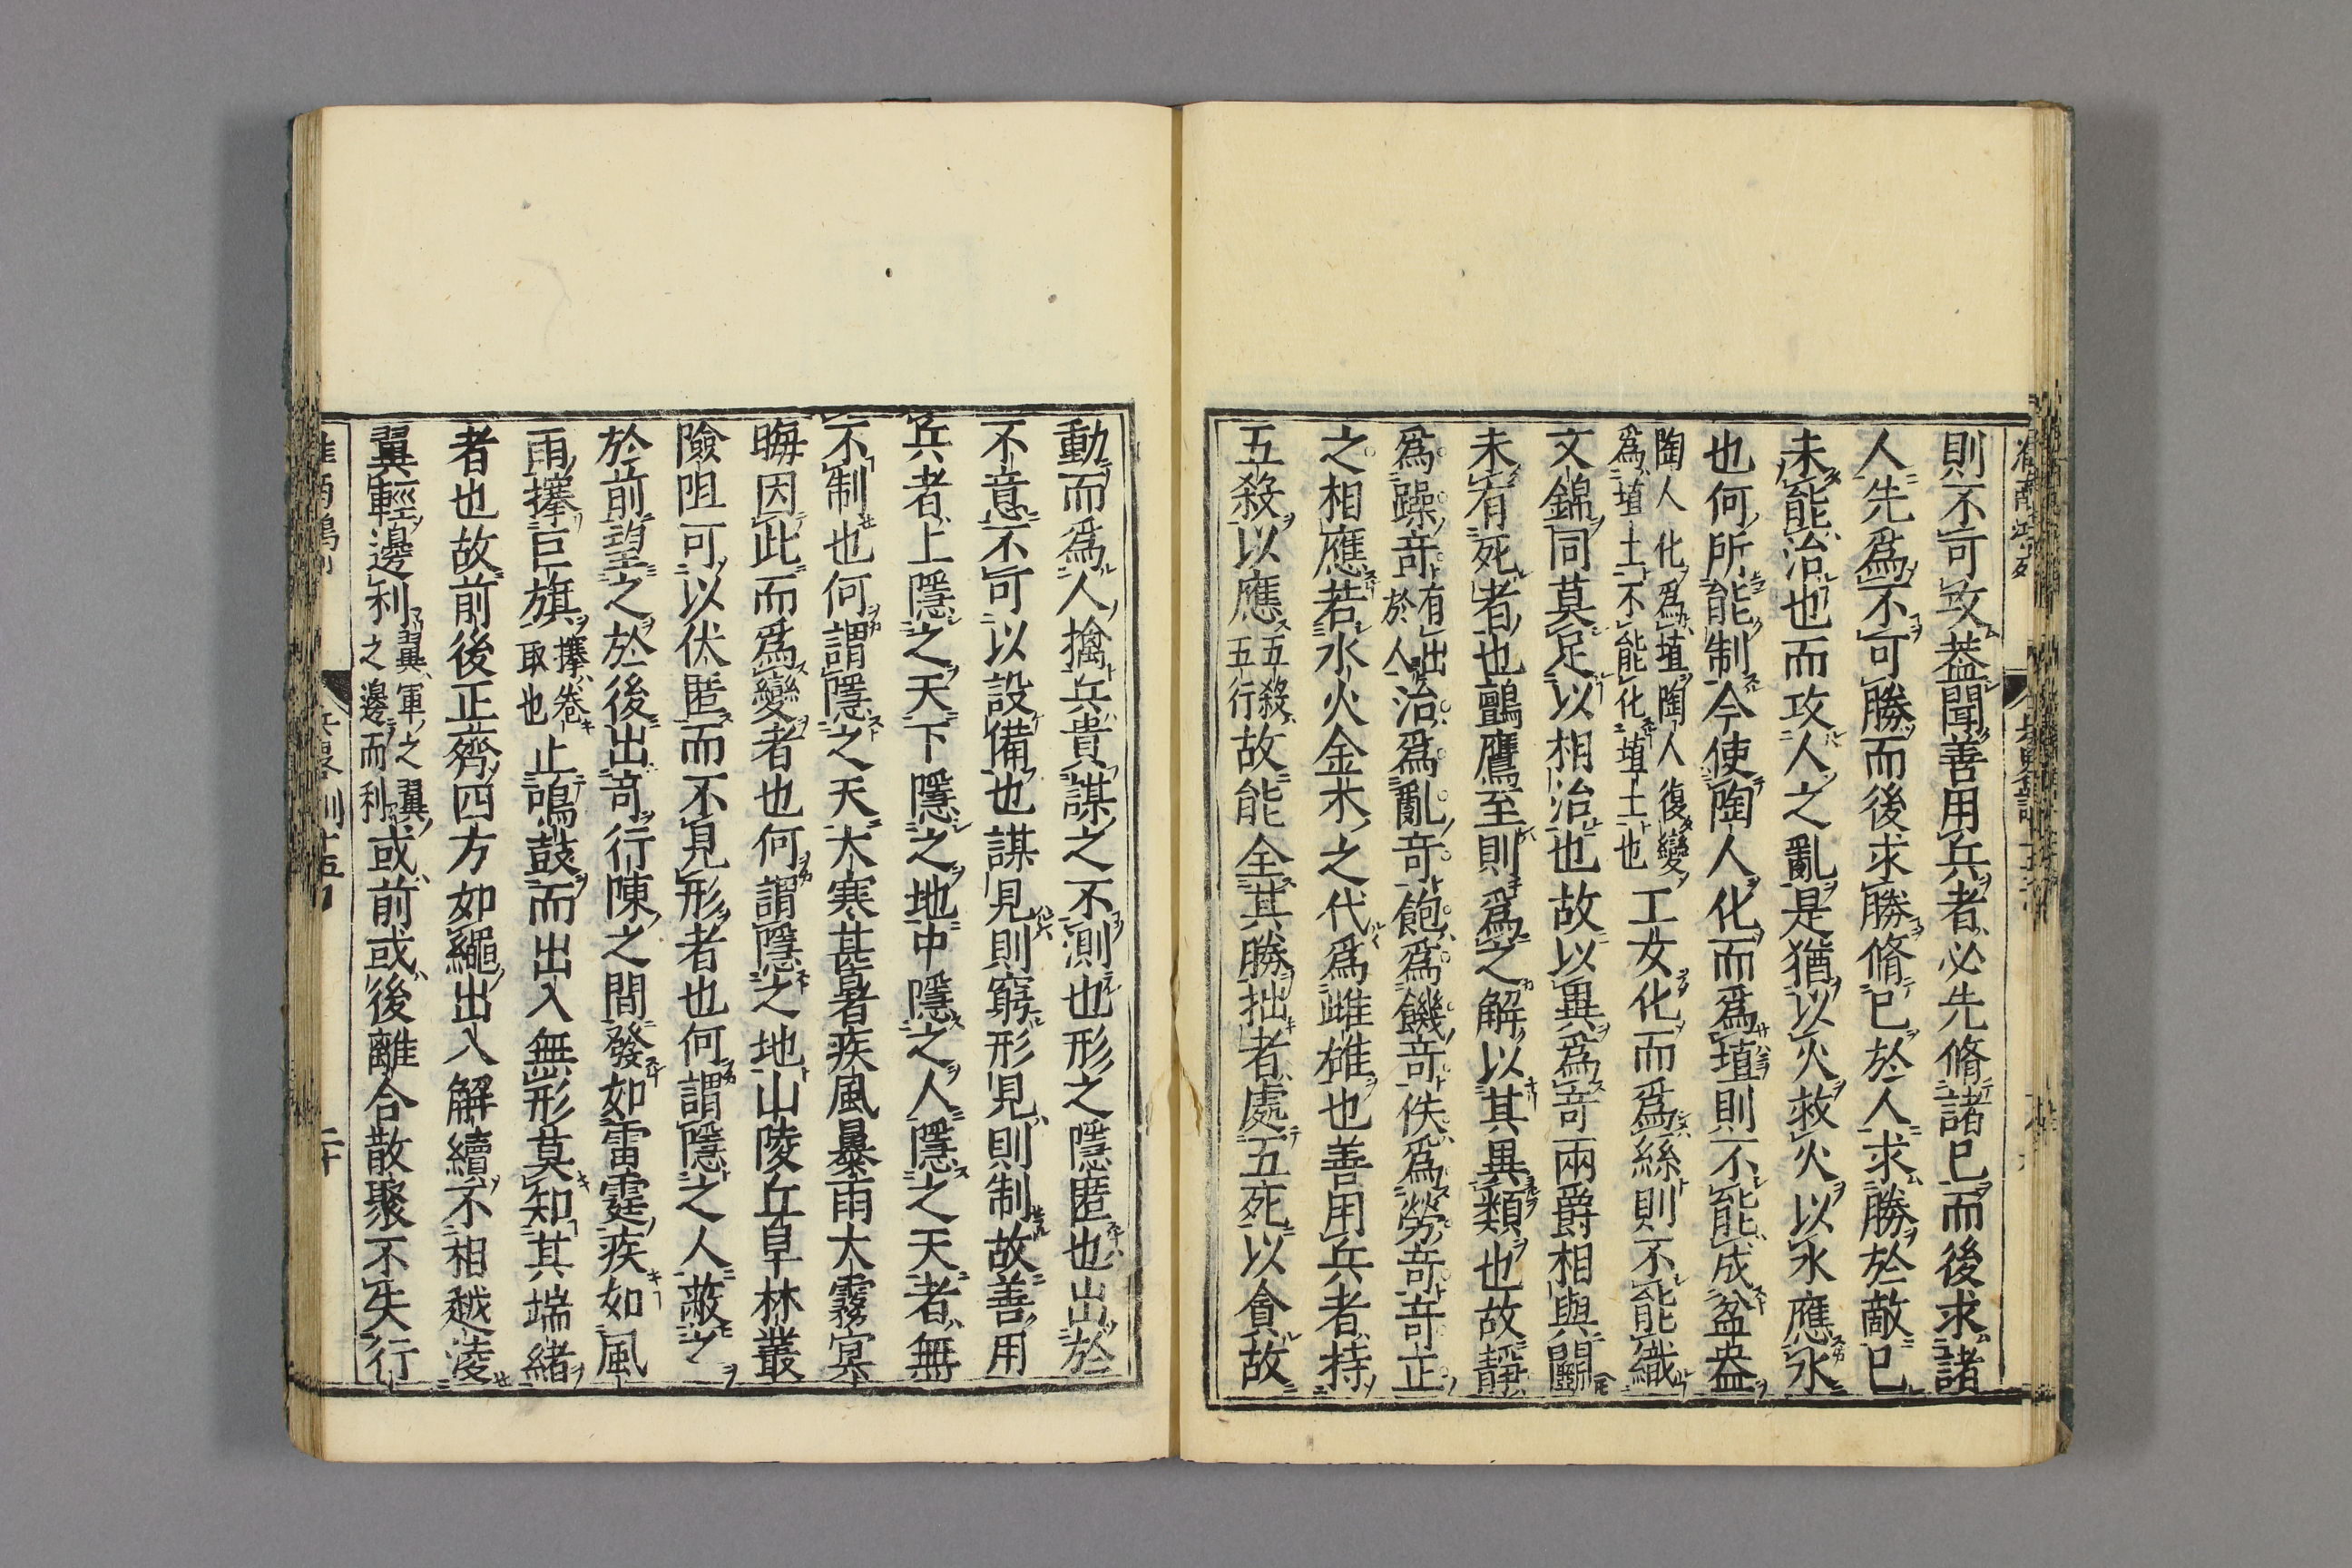 則不可攻葢聞善用兵者必先脩諸巳而後求諸
人先爲不可勝而後求勝脩巳於人求勝於敵巳
未能治也而攻人之亂是猶以火救火以水應水
也何所能制今使陶人化而爲埴則不能成盆盎
陶人化爲埴陶人復變
爲埴土不能化埴土也
工女化而爲絲則不能織
文錦同莫足以相治也故以異爲竒兩爵相與鬭
未有死者也鸇鷹至則爲之解以其異類也故靜
爲躁竒
有出
於人
治爲亂竒飽爲饑竒佚爲勞竒竒正
之相應若水火金木之代爲雌雄也善用兵者持
五殺以應
五殺
五行
故能全其勝拙者處五死以貪故
動而爲人擒兵貴謀之不測也形之隱匿也出於
不意不可以設備也謀見則窮形見則制故善用
兵者上隱之天下隱之地中隱之人隱之天者無
不制也何謂隱之天大寒甚暑疾風暴雨大霧冥
晦因此而爲變者也何謂隱之地山陵丘阜林叢
險阻可以伏匿而不見形者也何謂隱之人蔽之
於前望之於後出竒行陳之間發如雷霆疾如風
雨搴巨旗
搴卷
取也
止鳴鼓而出入無形莫知其端緒
者也故前後正齊四方如繩出入解續不相越淩
翼輕邊利
翼軍之翼
之邊而利
或前或後離合散聚不失行